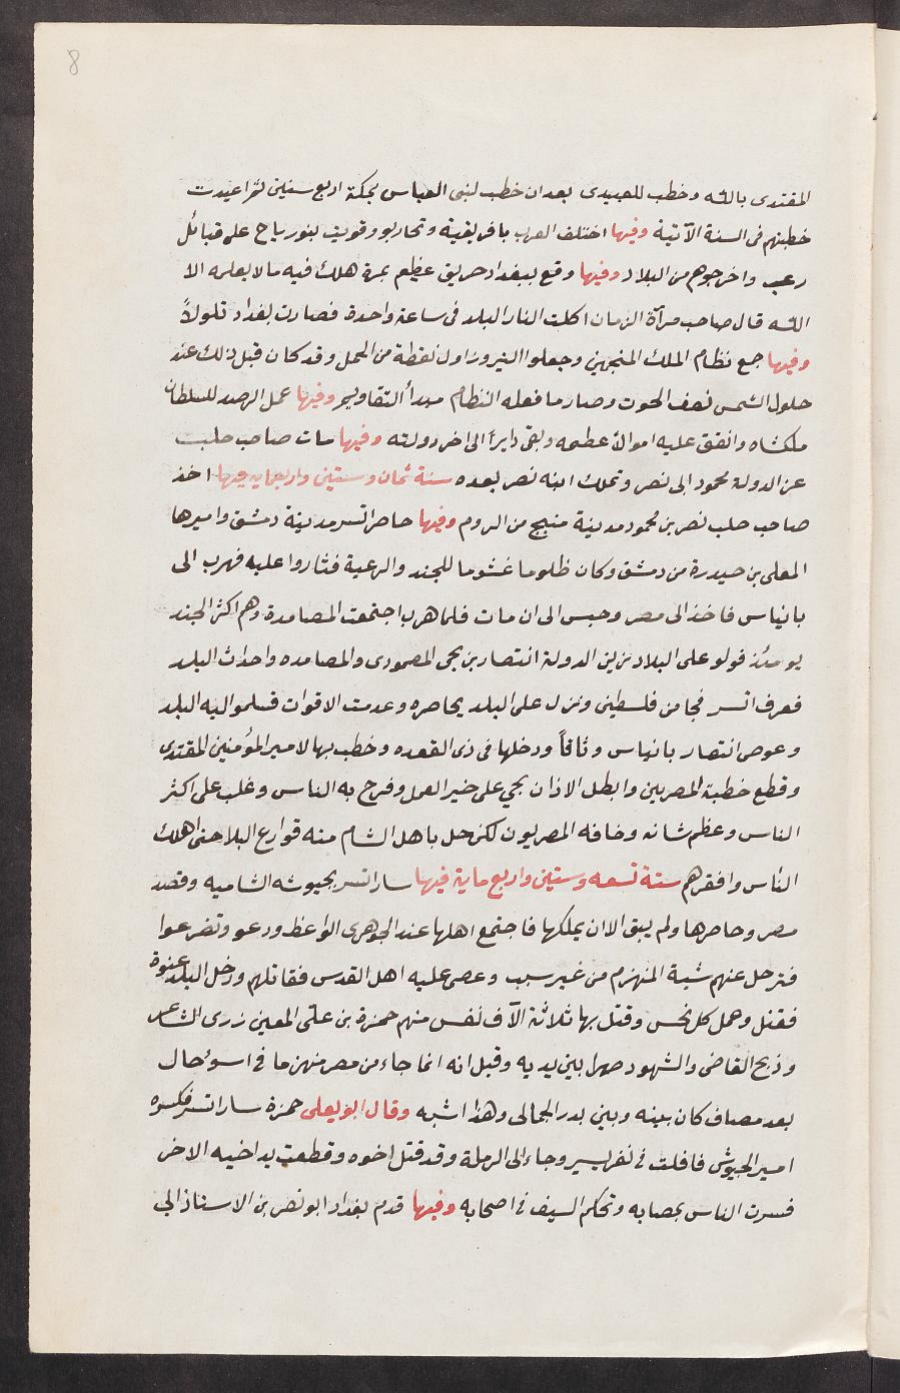 8
المقتدى بالله وخطب للعبيدى بعد ان خطب لبنى العباس بمكة اربع سنين ثم اعيدت
خطبتهم فى السنة الآتية وفيها اختلف العرب بافريقية وتحاربوا وقويت بنو رياح على قبائل
زعب واخرجوهم من البلاد وفيها وقع ببغداد حريق عظيم بمرة هلك فيه مالا يعلمه الا
الله قال صاحب مرآة الزمان اكلت النار البلد فى ساعة واحدة فصارت بغداد تلولاً
وفيها جمع نظام الملك المنجمين وجعلوا النيروز اول نقطة من الحمل وقد كان قبل ذلك عند
حلول الشمس نصف الحوت وصار ما فعله النظام مبدأ التقاويم وفيها عمل الرصد للسلطان
ملكشاه وانفق عليه اموالاً عظيمه وبقى دايراً الى اخر دولته وفيها مات صاحب حلب
عز الدولة محمود ابى نصر وتملك ابنه نصر بعده سنة ثمان وستين واربعمايه فيها اخذ
صاحب حلب نصر بن محمود مدينة منبج من الروم وفيها حاصر اتسز مدينة دمشق واميرها
المعلى بن حيدرة من دمشق وكان ظلوما غشوما للجند والرعية فثاروا عليه فهرب الى
بانياس فاخذ الى مصر وحبس الى ان مات فلما هرب اجتمعت المصامدة وهم اكثر الجند
يومئذ فولو على البلاد زين الدولة انتصار بن يحى المصمودى والمصامده واحداث البلد
فعرف اتسز فجا من فلسطين ونزل على البلد يحاصره وعدمت الاقوات فسلموا اليه البلد
وعوض انتصار بانياس ويافا ودخلها فى ذى القعده وخطب بها لامير المؤمنين المقتدى
وقطع خطبة المصريين وابطل الاذان بحى على خير العمل وفرح به الناس وغلب على اكثر
الناس وعظم شانه وخافه المصريون لكن حل باهل الشام منه قوارع البلا حتى اهلك
الناس وافقرهم سنة تسعه وستين واربع ماية فيها سار اتسز بجيوشه الشاميه وقصد
مصر وحاصرها ولم يبق الا ان يملكها فاجتمع اهلها عند الجوهرى الواعظ ودعو وتضرعوا
فترحل عنهم شبة المنهزم من غير سبب وعصى عليه اهل القدس فقاتلهم ودخل البلد عنوة
فقتل وعمل كل نحس وقتل بها ثلاثة الآف نفس منهم حمزة بن على المعين زرى الشاعر
وذبح القاضى والشهود صبرا بين يديه وقيل انه انما جاء من مصر منهزما فى اسوء حال
بعد مصاف كان بينه وبين بدر الجمالى وهذا اشبه وقال ابو يعلى حمزة سار اتسز فكسره
امير الجيوش فافلت فى نفر يسير وجاء الى الرملة وقد قتل اخوه وقطعت يد اخيه الاخر
فسرت الناس بمصابه وتحكم السيف فى اصحابه وفيها قدم بغداد ابو نصر بن الاستاذ ابى